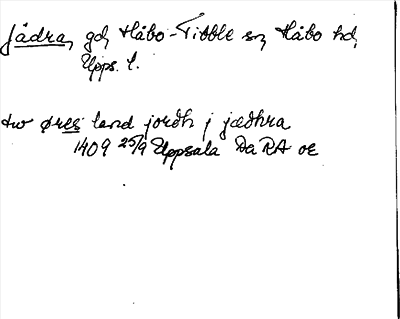 Jädra, gd, Håbo-Tibble sn, Håbo hd,
Upps. l.
tw øres land jordh j jædhra
1409 25/9 Uppsala Da RA oc